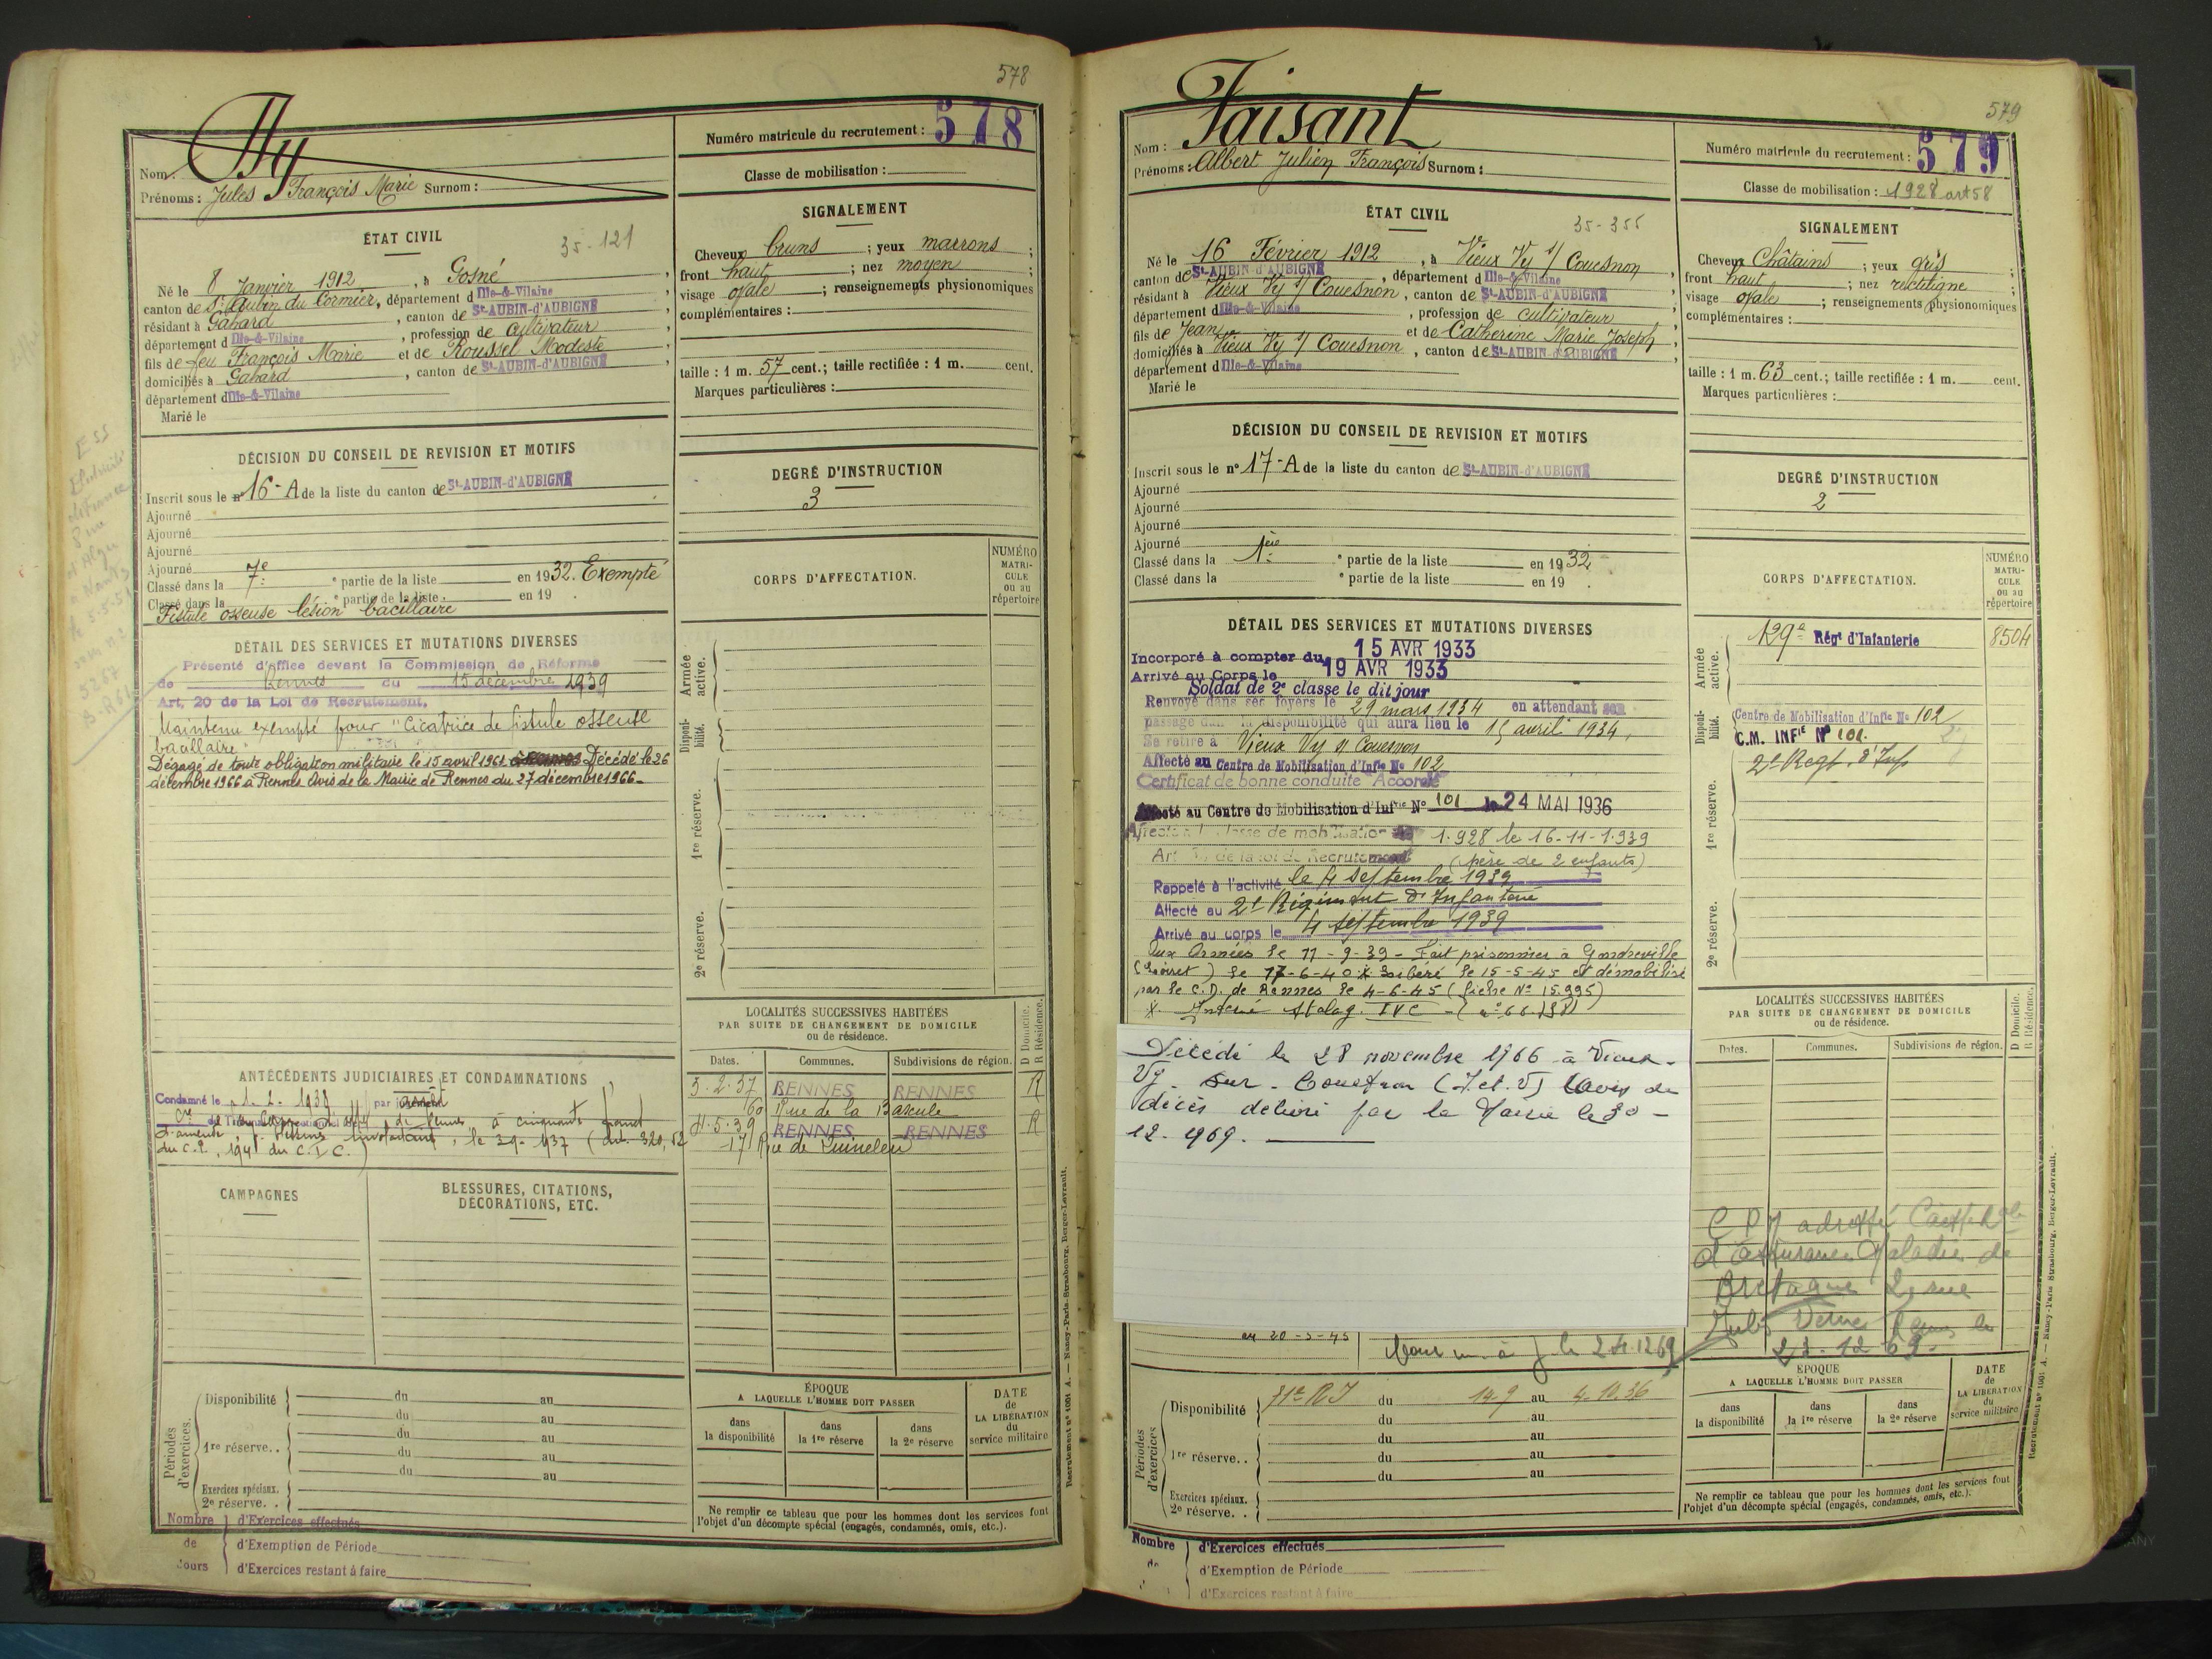 578
Numéro matricule du recrutement : 578
Nom : Hy
Prénoms : Jules François Marie Surnom :
Classe de mobilisation :
ÉTAT CIVIL
35-121
Né le 8 Janvier 1912, à Gosné,
canton de St Aubin du Cormier, département d Ille-&-Vilaine
résidant à Gahard, canton de St-AUBIN-d'AUBIGNÉ
département d Ille-&-Vilaine, profession de cultivateur,
fils de feu François Marie et de Roussel Modeste
domiciliés à Gahard, canton de St-AUBIN-d'AUBIGNÉ
département d Ille-&-Vilaine
Marié le
SIGNALEMENT
Cheveux bruns ; yeux marrons ;
front haut ; nez moyen ;
visage ovale ; renseignements physionomiques
complémentaires :
taille : 1 m. 57 cent.; taille rectifiée : 1 m. cent.
Marques particulières :
DÉCISION DU CONSEIL DE REVISION ET MOTIFS
Inscrit sous le n° 16-A de la liste du canton de St-AUBIN-d'AUBIGNÉ
Ajourné
Ajourné
Ajourné
Ajourné
Classé dans la 7e partie de la liste en 1932. Exempté
Classé dans la ° partie de la liste en 19 .
Fistule osseuse lésion bacillaire
DEGRÉ D'INSTRUCTION
3
CORPS D'AFFECTATION.
NUMÉRO
MATRI-
CULE
ou au
répertoire
DÉTAIL DES SERVICES ET MUTATIONS DIVERSES
Présenté d'office devant la Commission de Réforme
de Rennes du 15 décembre 1939
Art. 20 de la Loi de Recrutement,
Maintenu exempté pour "Cicatrice de fistule osseuse
bacillaire"
Dégagé de toute obligation militaire le 15 avril 1961 Décédé le 26
décembre 1966 à Rennes Avis de la Mairie de Rennes du 27 décembre 1966
Armée
active.
Disponi-
bilité.
1re réserve.
2e réserve.
LOCALITÉS SUCCESSIVES HABITÉES
PAR SUITE DE CHANGEMENT DE DOMICILE
ou de résidence.
D Domicile.
R Résidence.
Dates. Communes. Subdivisions de région.
3.2.37 RENNES RENNES R
60 Rue de la Bascule
4.5.39 RENNES RENNES R
17 Rue de Quineleu
ANTÉCÉDENTS JUDICIAIRES ET CONDAMNATIONS
Condamné le 1-2-1938 par
de Rennes à cinquante francs
d'amende
CAMPAGNES
BLESSURES, CITATIONS,
DÉCORATIONS, ETC.
Périodes
d'exercices.
Disponibilité du au
du au
1re réserve. . du au
du au
du au
Exercices spéciaux.
2e réserve. .
ÉPOQUE
A LAQUELLE L'HOMME DOIT PASSER
dans
la disponibilité
dans
la 1re réserve
dans
la 2e réserve
DATE
de
LA LIBÉRATION
du
service militaire
Ne remplir ce tableau que pour les hommes dont les services font
l'objet d'un décompte spécial (engagés, condamnés, omis, etc.).
Nombre d'Exercices effectués
de d'Exemption de Période
Jours d'Exercices restant à faire
Recrutement n° 1001 A. — Nancy-Paris-Strasbourg, Berger-Levrault.
579
Numéro matricule du recrutement : 579
Nom : Faisant
Prénoms : Albert Julien François Surnom :
Classe de mobilisation : 1928 art 58
ÉTAT CIVIL
35-355
Né le 16 Février 1912, à Vieux Vy s/ Couesnon,
canton de St-AUBIN-d'AUBIGNÉ, département d Ille-&-Vilaine
résidant à Vieux Vy s/ Couesnon, canton de St-AUBIN-d'AUBIGNÉ
département d Ille-&-Vilaine, profession de cultivateur
fils de Jean et de Catherine Marie Joseph,
domiciliés à Vieux Vy s/ Couesnon, canton de St-AUBIN-d'AUBIGNÉ
département d Ille-&-Vilaine
Marié le
SIGNALEMENT
Cheveux Châtains ; yeux gris ;
front haut ; nez rectiligne ;
visage ovale ; renseignements physionomiques
complémentaires :
taille : 1 m. 63 cent.; taille rectifiée : 1 m. cent.
Marques particulières :
DÉCISION DU CONSEIL DE REVISION ET MOTIFS
Inscrit sous le n° 17-A de la liste du canton de St-AUBIN-d'AUBIGNÉ
Ajourné
Ajourné
Ajourné
Ajourné
Classé dans la 1ère ° partie de la liste en 1932
Classé dans la ° partie de la liste en 19 .
DEGRÉ D'INSTRUCTION
2
CORPS D'AFFECTATION.
NUMÉRO
MATRI-
CULE
ou au
répertoire
DÉTAIL DES SERVICES ET MUTATIONS DIVERSES
Incorporé à compter du 15 AVR 1933
Arrivé au Corps le 19 AVR 1933
Soldat de 2e classe le dit jour
Renvoyé dans ses foyers le 29 mars 1934 en attendant son
passage dans la disponibilité qui aura lieu le 15 avril 1934,
Se retire à Vieux Vy s/ Couesnon
Affecté au Centre de Mobilisation d'Infie No 102
Certificat de bonne conduite Accordé
Affecté au Centre de Mobilisation d'Infie No 101 le 24 MAI 1936
Affecté à la classe de mobilisation 1.928 le 16-11-1.939
Art de la loi de Recrutement (père de 2 enfants)
Rappelé à l'activité le 4 Septembre 1939
Affecté au 2e Régiment d'Infanterie
Arrivé au corps le 4 septembre 1939
Aux Armées le 11-9-39 - Fait prisonnier à Gondreville
(Loiret) le 17-6-40 x Libéré le 15-5-45 et démobilisé
par le C.D. de Rennes le 4-6-45 (fiche No 15.995)
x Interné Stalag. IVC
Armée
active.
129e Régt d'Infanterie 8504
Disponi-
bilité.
Centre de Mobilisation d'Infie No 102
C.M. INFIE No 101.
1re réserve.
2e Regt d'Inf
2e réserve.
Décédé le 28 novembre 1966 à Vieux-
Vy-sur-Couesnon (I. et. V) avis de
décès délivré par la Mairie le 30-
12-1969.
LOCALITÉS SUCCESSIVES HABITÉES
PAR SUITE DE CHANGEMENT DE DOMICILE
ou de résidence.
D Domicile.
R Résidence.
Dates. Communes. Subdivisions de région.
adressé Caisse
d'Assurance Maladie de
Bretagne 2, rue
Jules Verne Rennes le
23-12-69.
au 20-5-45
le 24.12.69
Périodes
d'exercices
Disponibilité 71e RI du 14-9 au 4-10.36
du au
du au
1re réserve. . du au
du au
Exercices spéciaux.
2e réserve. .
ÉPOQUE
A LAQUELLE L'HOMME DOIT PASSER
dans
la disponibilité
dans
la 1re réserve
dans
la 2e réserve
DATE
de
LA LIBÉRATION
du
service militaire
Ne remplir ce tableau que pour les hommes dont les services font
l'objet d'un décompte spécial (engagés, condamnés, omis, etc.).
Nombre d'Exercices effectués
de d'Exemption de Période
d'Exercices restant à faire
Recrutement n° 1001 A. — Nancy-Paris Strasbourg, Berger-Levrault.